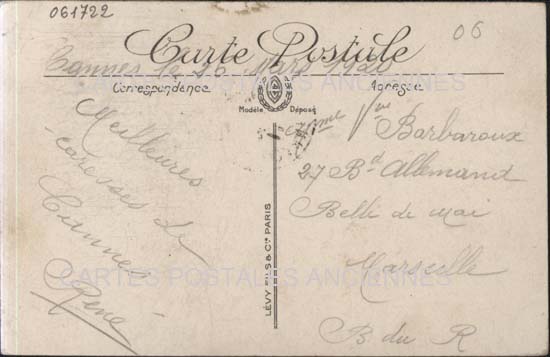 061722
06
Carte Postale
Cannes le 26 Mars
Correspondance
Adresse
Modèle Déposé
Meilleures
caresses de
Cannes
René
LÉVY FILS & Cie PARIS
Mme Vve Barbaroux
27 Bd Allemand
Belle de Mai
Marseille
B du R
CARTES POSTALES ANCIENNES